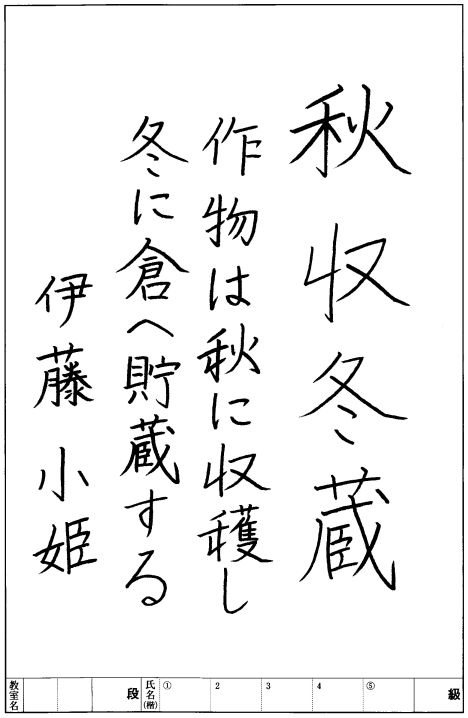 秋収冬蔵
作物は秋に収穫し
冬に倉へ貯蔵する
伊藤小姫
教室名 段 氏名(楷) ① 2 3 4 ⑤ 級